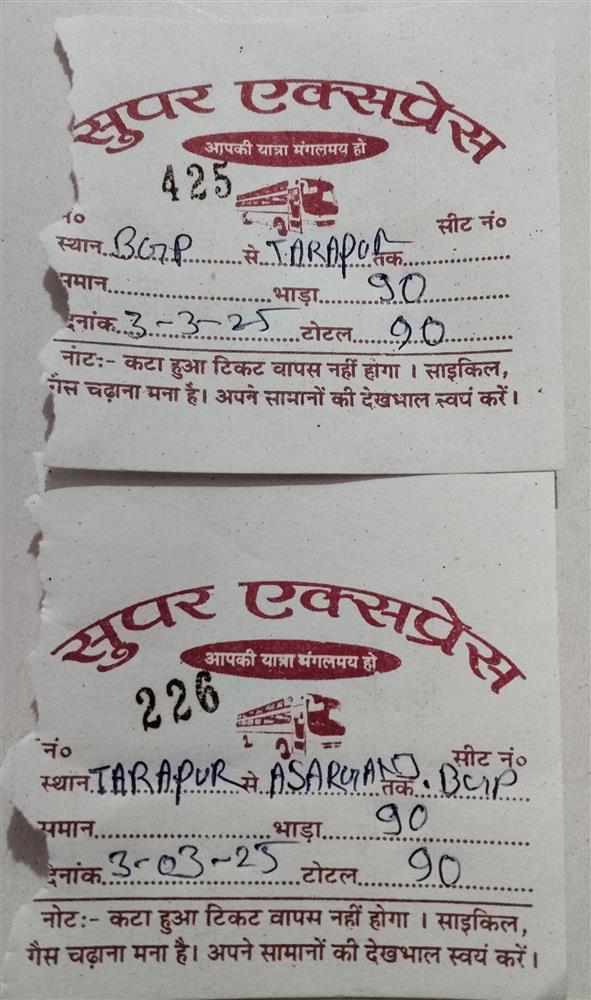 सुपर एक्सप्रेस
आपकी यात्रा मंगलमय हो
425
नं० सीट नं०
स्थान BGP से TARAPUR तक
समान भाड़ा 90
दिनांक 3-3-25 टोटल 90
नोट:- कटा हुआ टिकट वापस नहीं होगा । साइकिल,
गैस चढ़ाना मना है। अपने सामानों की देखभाल स्वयं करें।
सुपर एक्सप्रेस
आपकी यात्रा मंगलमय हो
226
नं० सीट नं०
स्थान TARAPUR से ASARGAND तक. BGP
समान भाड़ा 90
दिनांक 3-03-25 टोटल 90
नोट:- कटा हुआ टिकट वापस नहीं होगा । साइकिल,
गैस चढ़ाना मना है। अपने सामानों की देखभाल स्वयं करें।